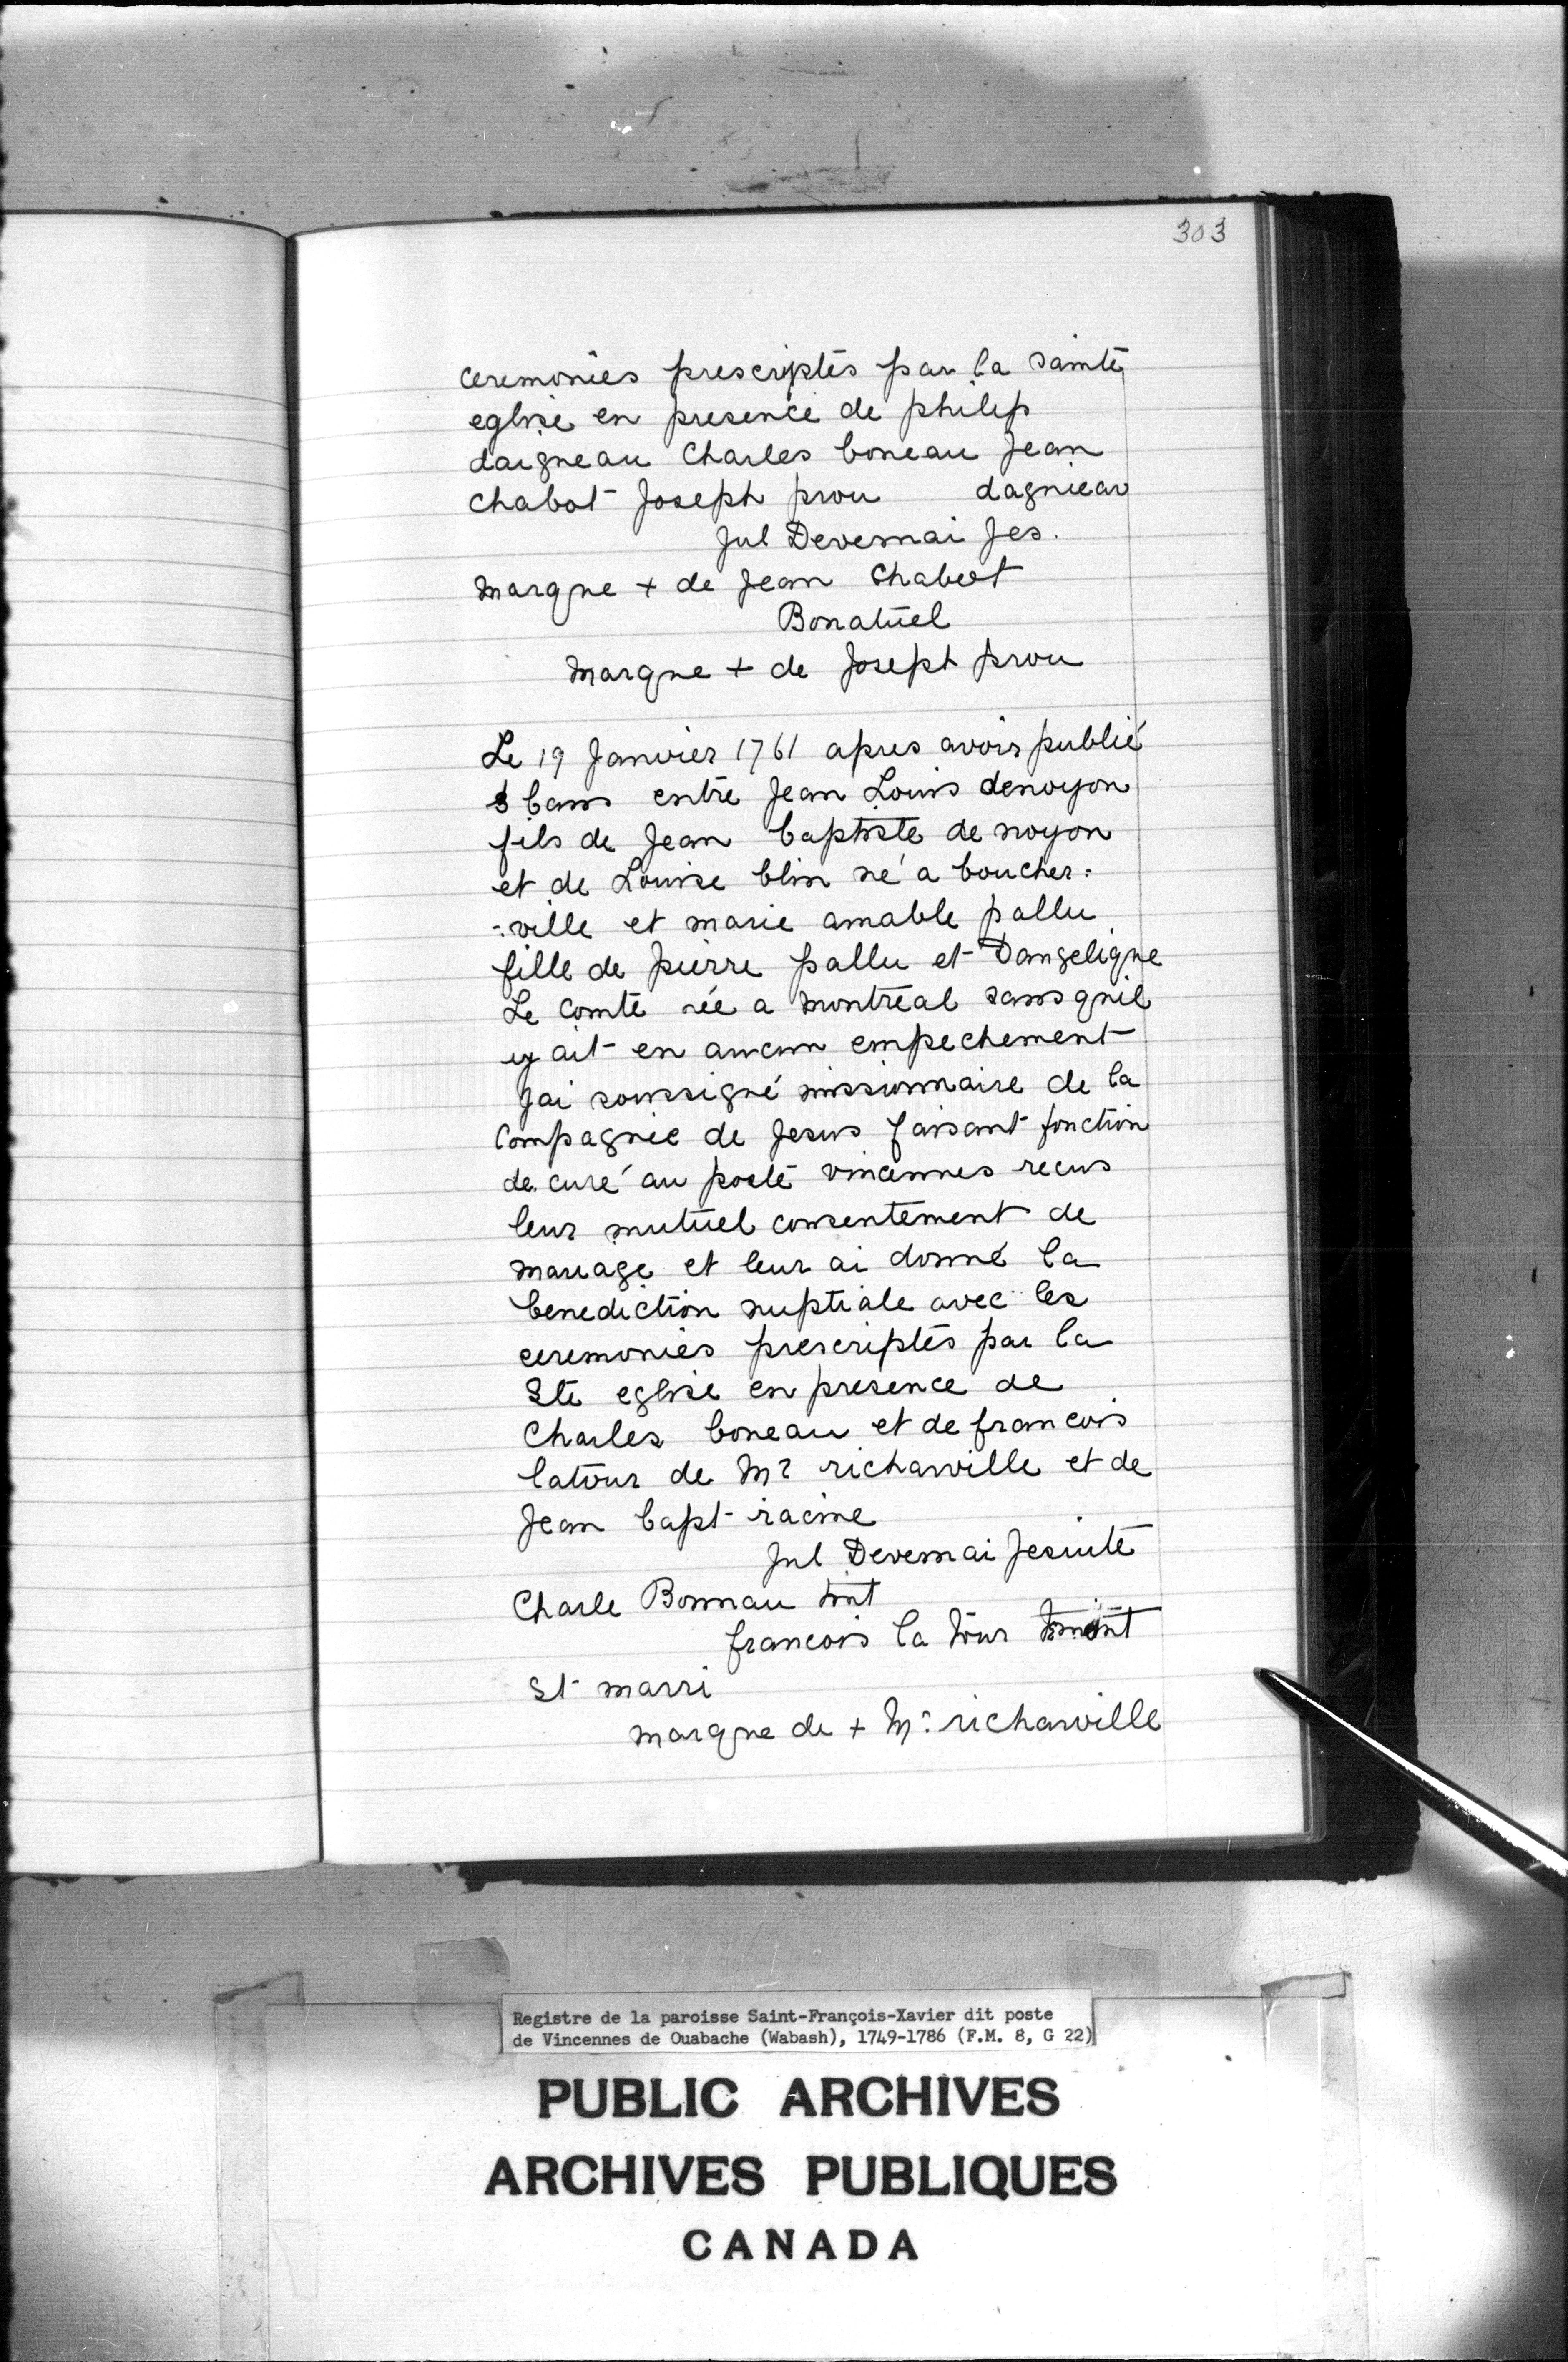 303
ceremonies prescriptes par la sainte
eglise en presence de philip
daigneau Charles boneau Jean
Chabot Joseph prou dagnieau
Jul Devernai Jes.
marque + de Jean Chabot
Bonatuel
marque + de Joseph prou
Le 19 Janvier 1761 apres avoir publié
3 bans entre Jean Louis denoyon
fils de Jean baptiste de noyon
et de Louise blin né a boucher=
=ville et marie amable pallu
fille de pierre pallu et Dangeligue
Le Comte née a montreal sans quil
y ait en aucun empechement
Jai soussigné missionnaire de la
Compagnie de Jesus faisant fonction
de curé au poste vincennes recus
leur mutuel consentement de
mariage et leur ai donné la
benediction nuptiale avec les
ceremonies prescriptes par la
Ste eglise en presence de
Charles boneau et de francois
latour de Mr richarville et de
Jean bapt racine
Jul Devernai Jesuite
Charle Bonnau tint
francois la tour
St marri
marque de + Mr richarville
Registre de la paroisse Saint-François-Xavier dit poste
de Vincennes de Ouabache (Wabash), 1749-1786 (F.M. 8, G 22)
PUBLIC ARCHIVES
ARCHIVES PUBLIQUES
CANADA